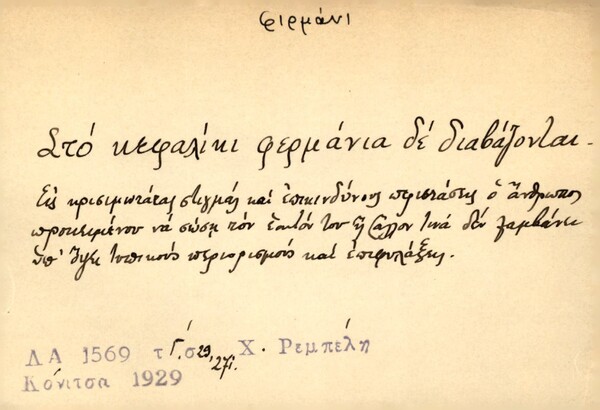 φιρμάνι
Στό κεφαλίκι φερμάνια δέ διαβάζονται.
Εἰς κρισιμωτάτας στιγμάς καί ἐπικινδύνους περιστάσεις ὁ ἄνθρωπος
προκειμένου νά σώσῃ τόν ἑαυτόν του ἤ ἄλλον τινά δέν λαμβάνει
ὑπ' ὄψει τυπικούς περιορισμούς καί ἐπιφυλάξεις.
ΛΑ 1569 τ Γ΄. σ 29, 271. Χ. Ρεμπέλη
Κόνιτσα 1929